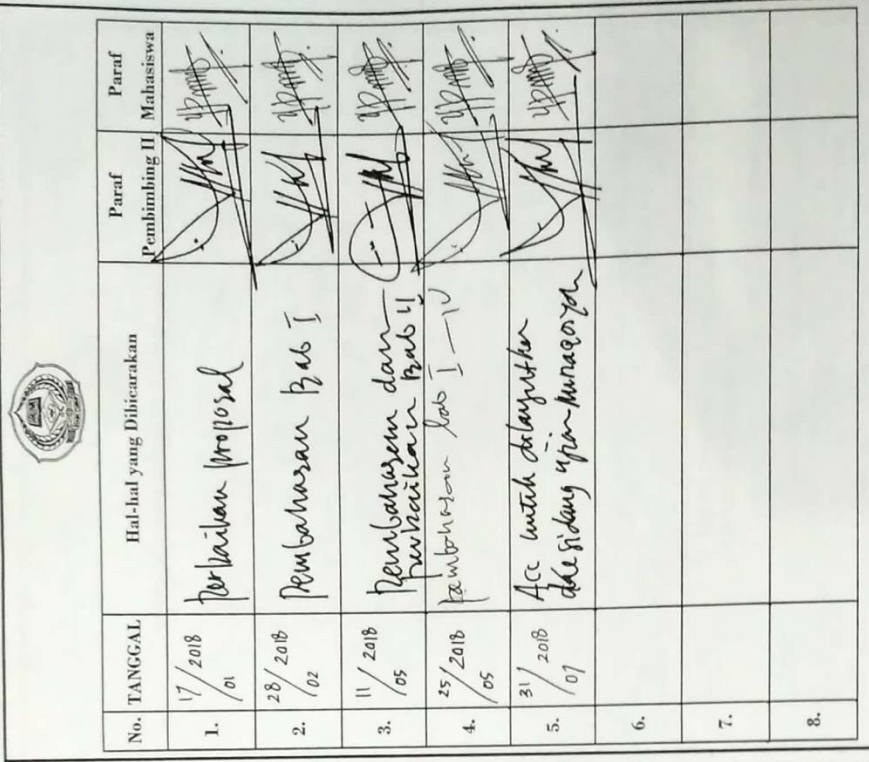 No.
TANGGAL
Hal-hal yang Dibicarakan
Paraf
Pembimbing II
Paraf
Mahasiswa
1.
17/2018
/01
Perbaikan proposal
2.
28/2018
/02
Pembahasan Bab I
3.
11/2018
/05
Pembahasan dan
perbaikan Bab II
4.
25/2018
/05
pembahasan bab I - IV
5.
31/2018
/07
Acc untuk dilanjutkan
ke sidang ujian munaqosyah
6.
7.
8.